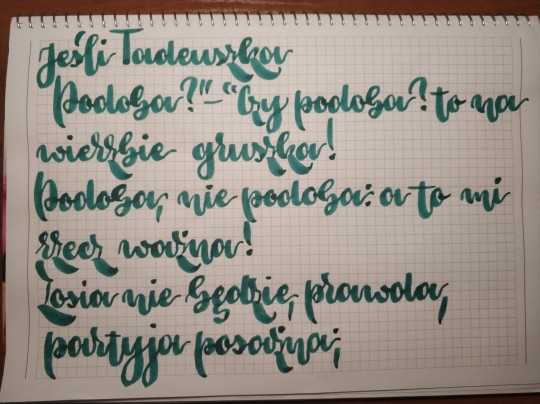 Jeśli Tadeuszka
Podoba?"–"Czy podoba? to na
wierzbie gruszka!
Podoba, nie podoba: a to mi
rzecz ważna!
Zosia nie będzie, prawda,
partyja posażna;